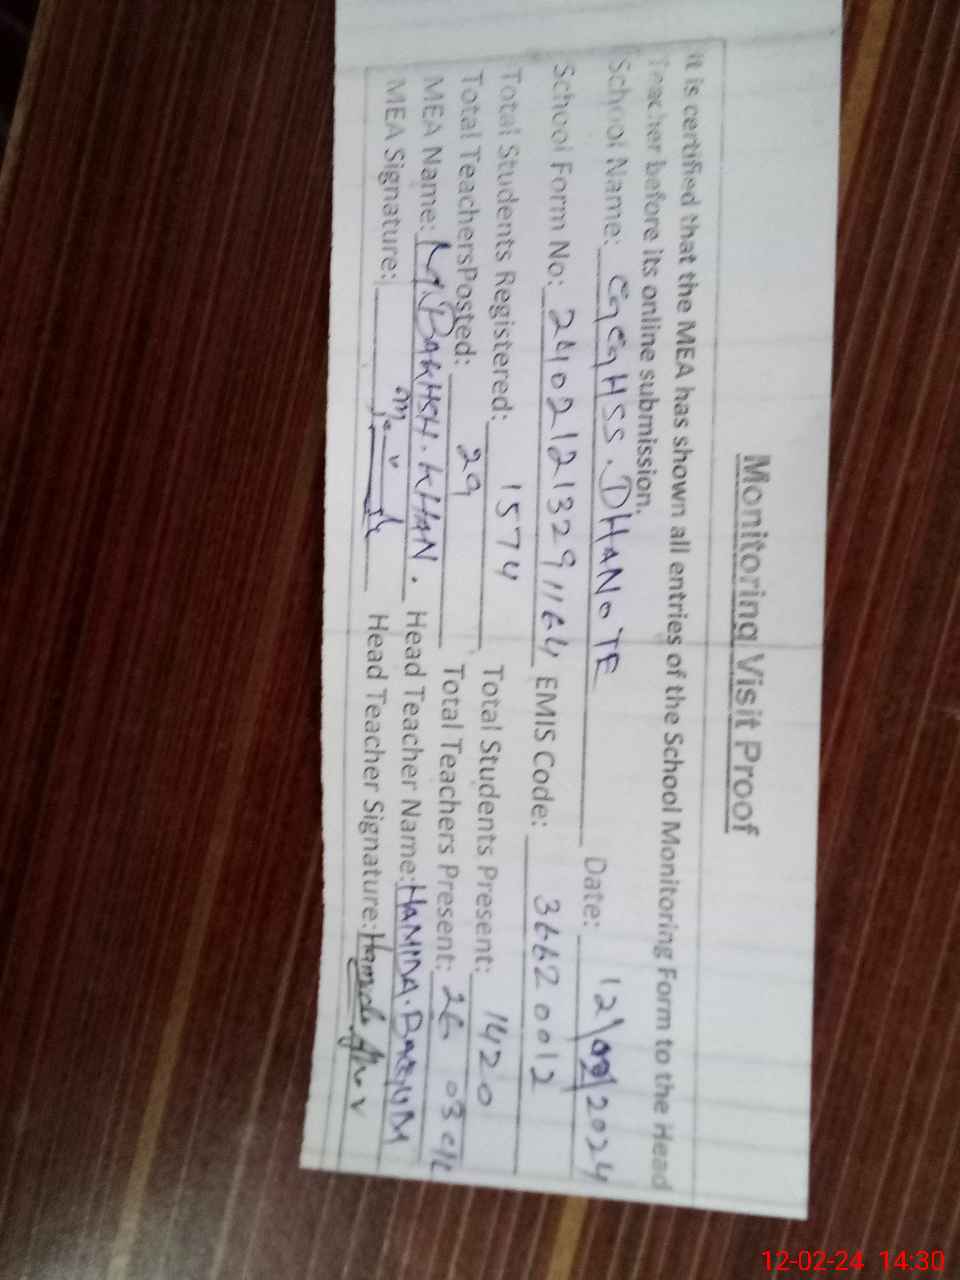 Monitoring Visit Proof
It is certified that the MEA has shown all entries of the School Monitoring Form to the Head
Teacher before its online submission.
School Name: GGHSS. DHANOTE Date: 12/02/2024
School Form No: 24021213291164 EMIS Code: 36620012
Total Students Registered: 1574 Total Students Present: 1420
Total TeachersPosted: 29 Total Teachers Present: 26 03 c/L
MEA Name: M.BAKHSH.KHAN. Head Teacher Name: HAMIDA.BEGUM
MEA Signature: Head Teacher Signature: Hamida
12-02-24 14:30